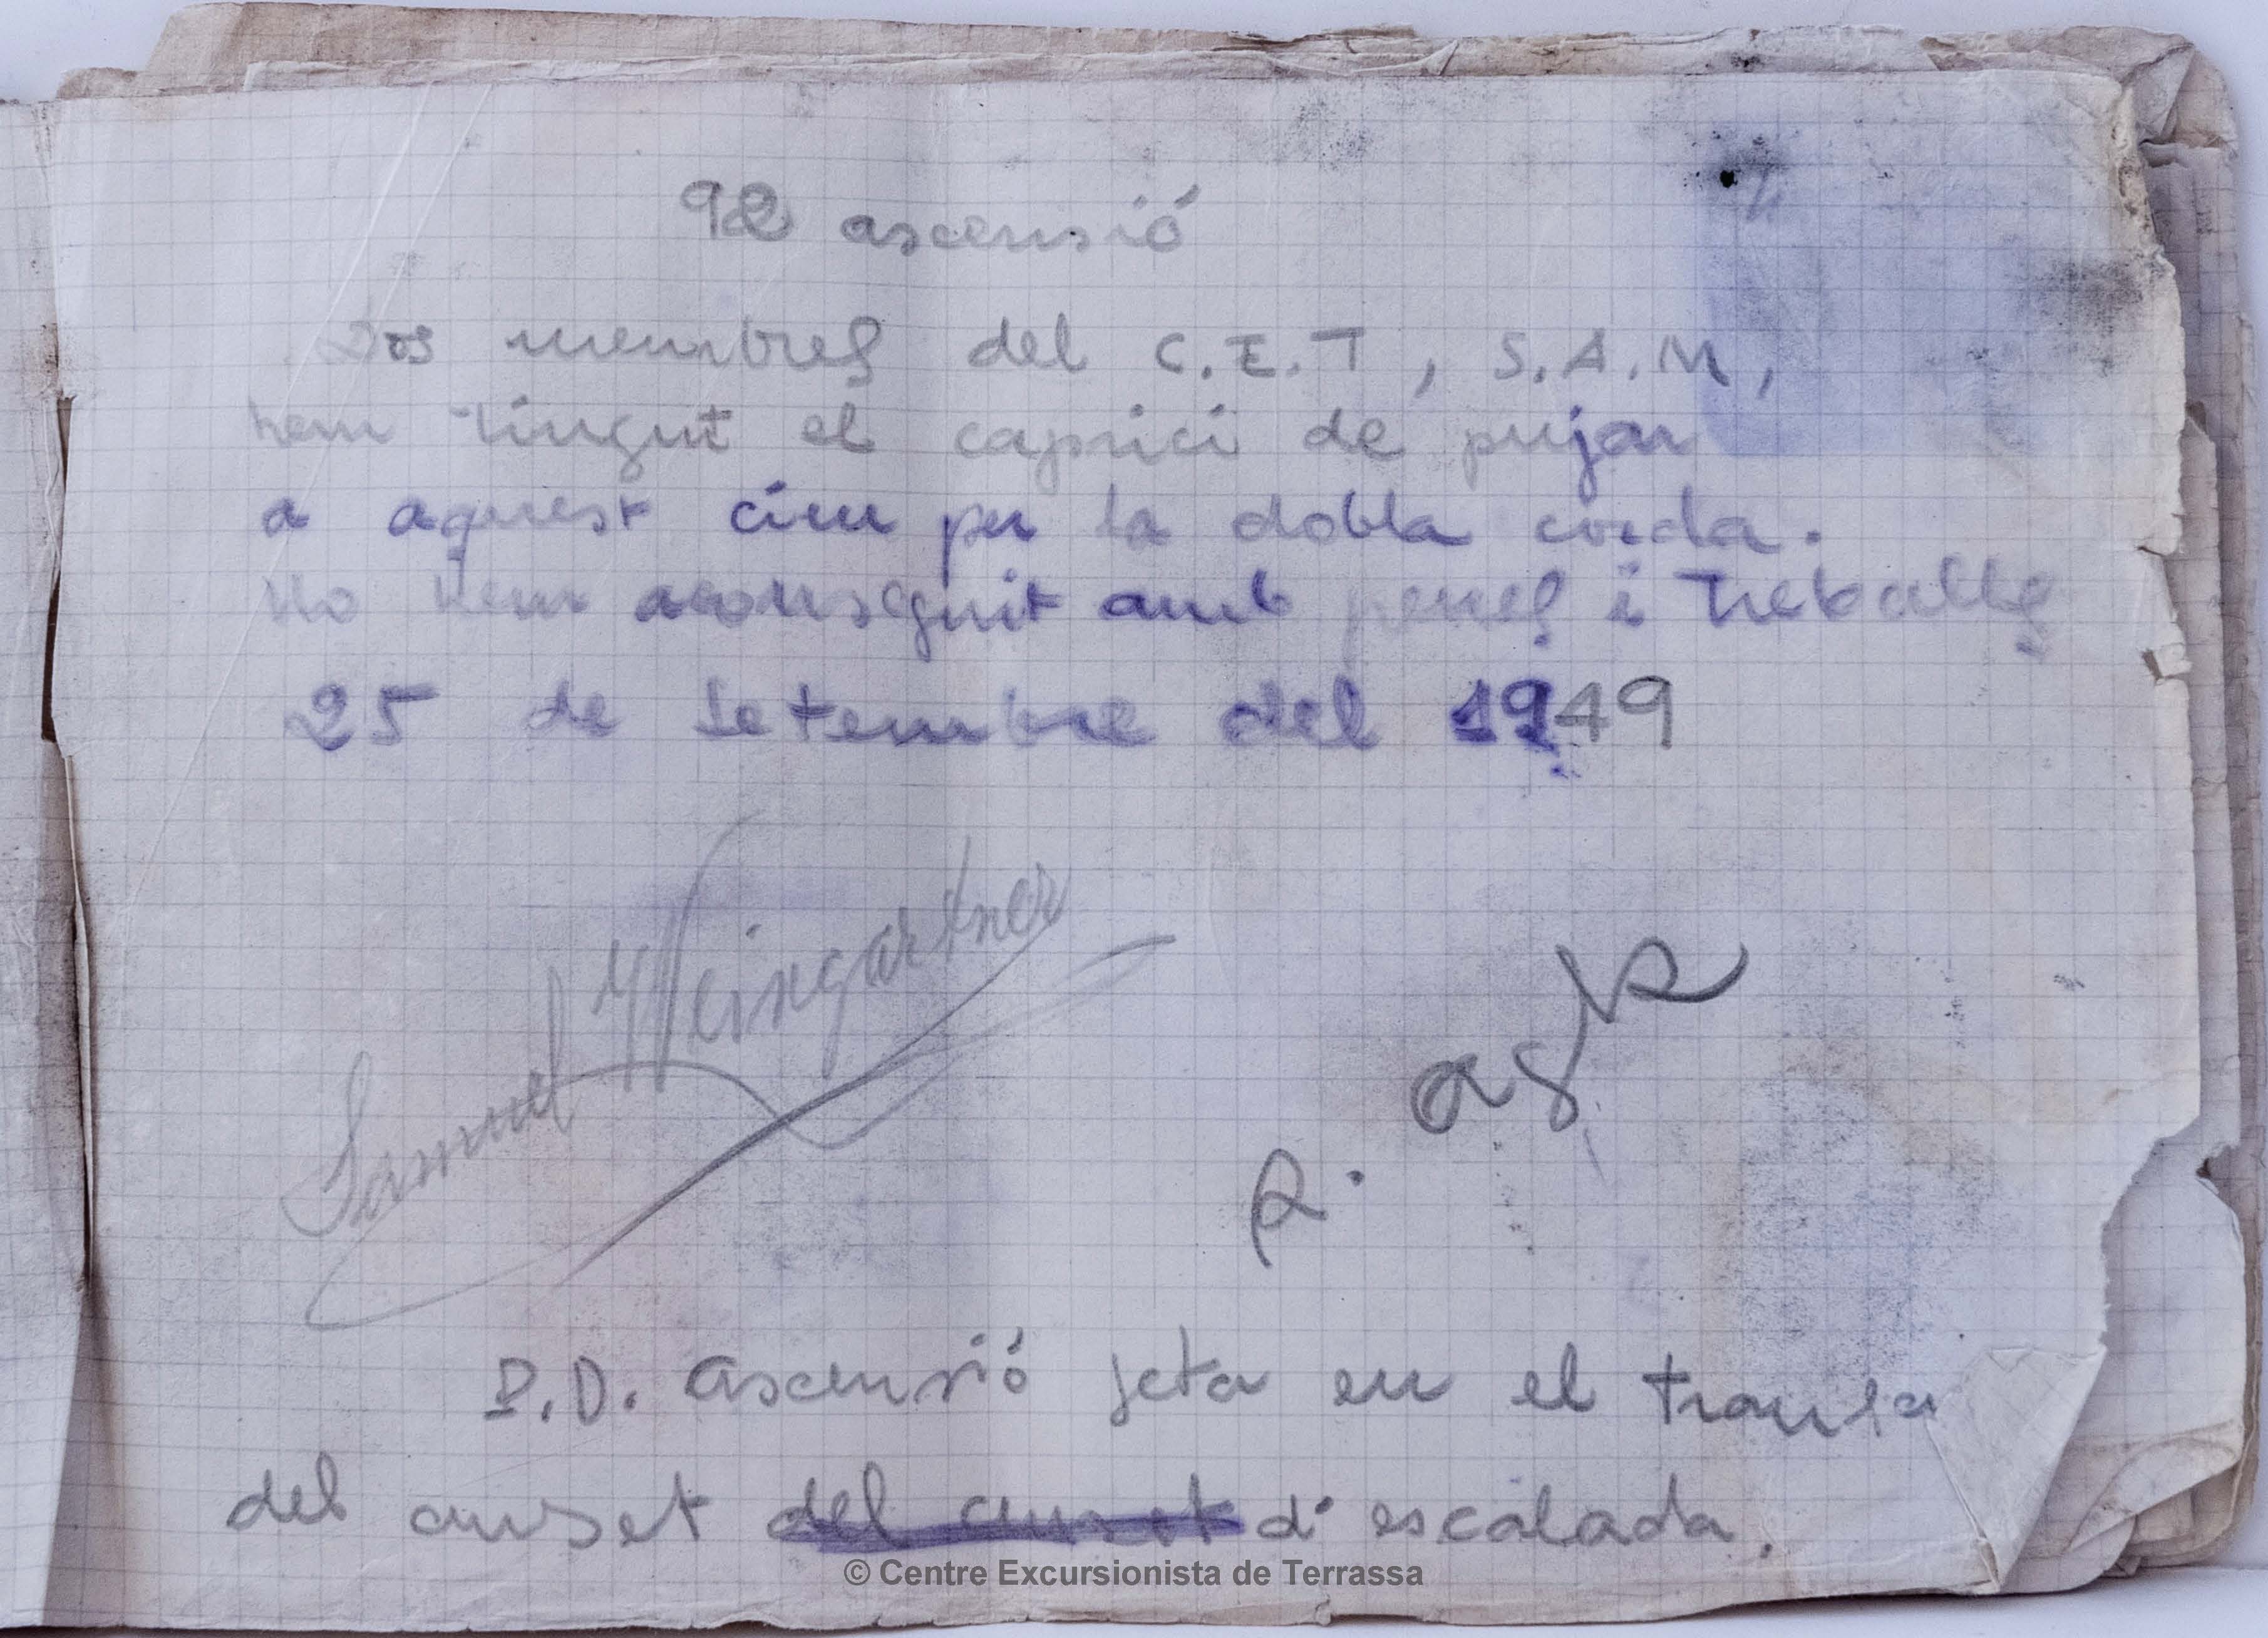 92 ascensió
Dos membres del C.E.T, S.A.M,
hem tingut el caprici de pujar
a aquest cim per la dobla corda.
Ho hem aconseguit amb penes i treballs
25 de setembre del 1949
Samuel Weingartner
P.D. ascensió feta en el
del curset del curset d'escalada.
© Centre Excursionista de Terrassa